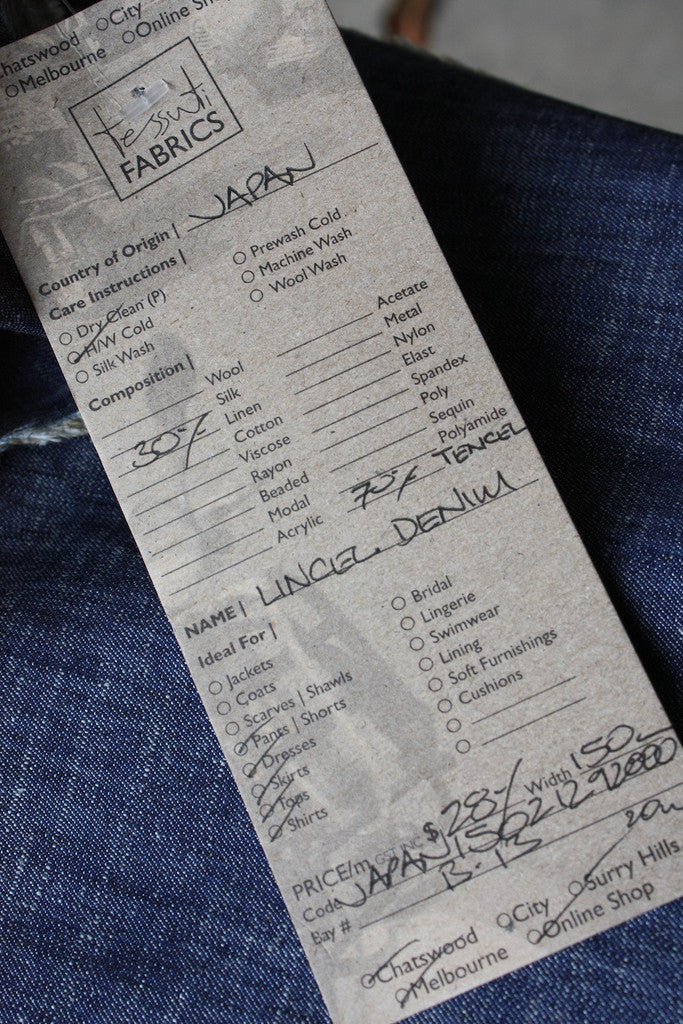 Chatswood ○City
○Melbourne ○Online Sh
tessuti
FABRICS
Country of Origin | JAPAN
Care Instructions |
○ Dry Clean (P)
○ H/W Cold
○ Silk Wash
○ Prewash Cold
○ Machine Wash
○ Wool Wash
Composition |
Wool
Silk
30% Linen
Cotton
Viscose
Rayon
Beaded
Modal
Acrylic
Acetate
Metal
Nylon
Elast
Spandex
Poly
Sequin
Polyamide
70% TENCEL
NAME | LINCEL DENIM
Ideal For |
○ Jackets
○ Coats
○ Scarves | Shawls
○ Pants | Shorts
○ Dresses
○ Skirts
○ Tops
○ Shirts
○ Bridal
○ Lingerie
○ Swimwear
○ Lining
○ Soft Furnishings
○ Cushions
○
○
PRICE/m GST INC $ 28 Width 150
Code JAPAN150212-92000
Bay # B-13 20m
○Chatswood ○City ○Surry Hills
○Melbourne ○Online Shop